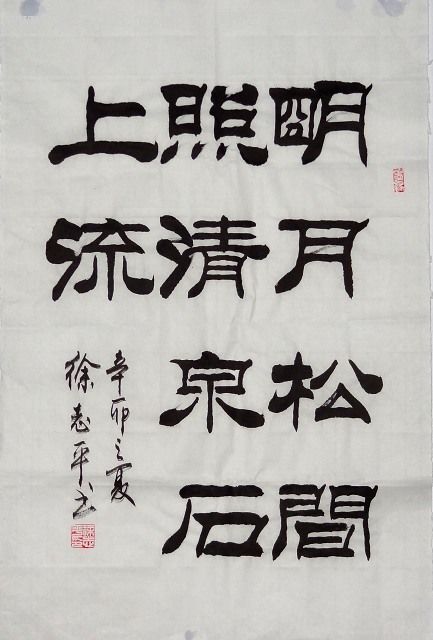 明月松間
照清泉石
上流
辛卯之夏
徐志平书